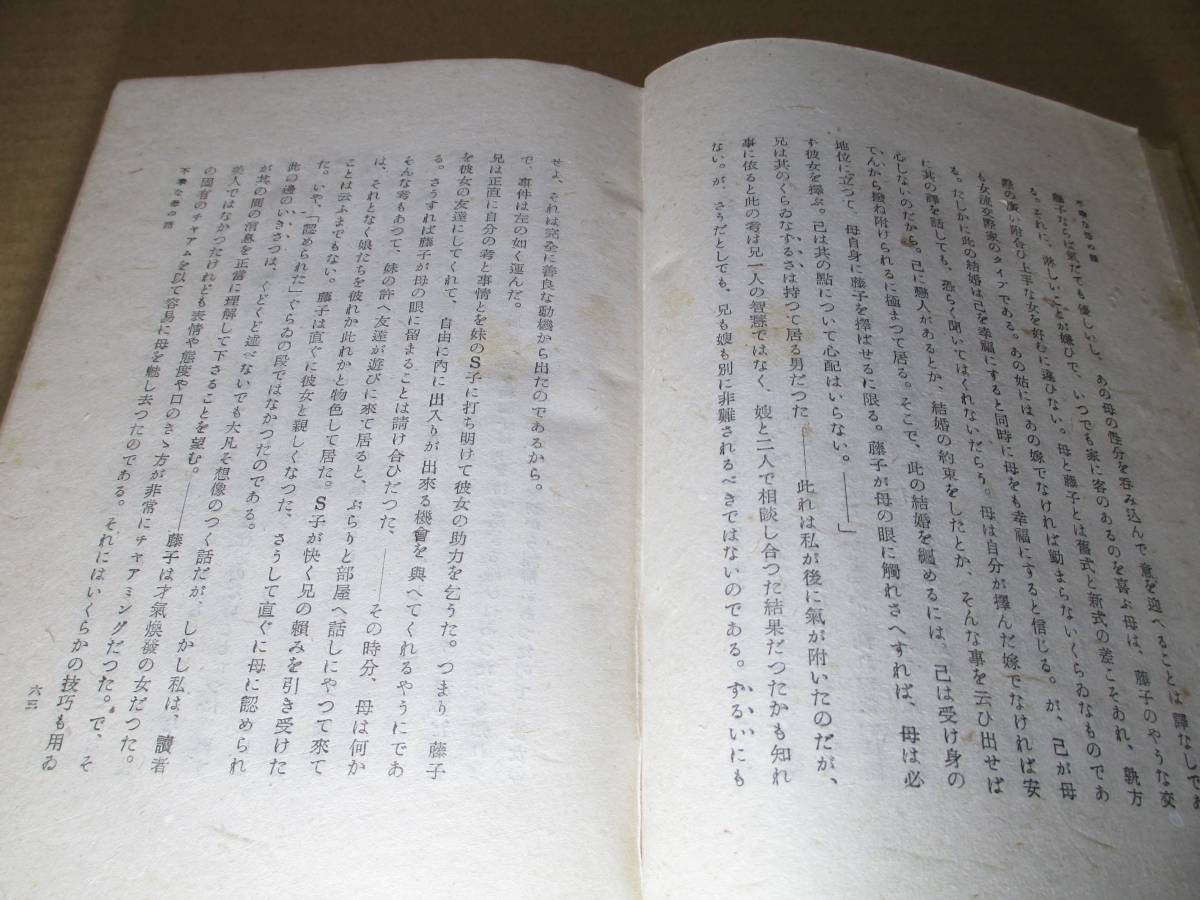 不幸な母の話
藤子ならば氣だても優しいし、あの母の性分を呑み込んで意を迎へることは譯なしであ
る。それに、淋しいことが嫌ひで、いつでも家に客のあるのを喜ぶ母は、藤子のやうな交
際の廣い附合ひ上手な女を好むに違ひない。母と藤子とは舊式と新式の差こそあれ、孰方
も女流交際家のタイプである。あの姑にはあの嫁でなければ勤まらないくらゐなものであ
る。たしかに此の結婚は己を幸福にすると同時に母をも幸福にすると信じる。が、己が母
に其の譯を話しても、恐らく聞いてはくれないだらう。母は自分が擇んだ嫁でなければ安
心しないのだから。己に戀人があるとか、結婚の約束をしたとか、そんな事を云ひ出せば
てんから撥ね附けられるに極まつて居る。そこで、此の結婚を纒めるには、己は受け身の
地位に立つて、母自身に藤子を擇ばせるに限る。藤子が母の眼に觸れさへすれば、母は必
ず彼女を擇ぶ。己は其の點について心配はいらない。――」
兄は其のくらゐなずるさは持つて居る男だつた――此れは私が後に氣が附いたのだが、
事に依ると此の考は兄一人の智慧ではなく、嫂と二人で相談し合つた結果だつたかも知れ
ない。が、さうだとしても、兄も嫂も別に非難されるべきではないのである。ずるいにも
せよ、それは完全に善良な動機から出たのであるから。
で、事件は左の如く運んだ。
兄は正直に自分の考と事情とを妹のS子に打ち明けて彼女の助力を乞うた。つまり、藤子
を彼女の友達にしてくれて、自由に内に出入りが出來る機會を與へてくれるやうにであ
る。さうすれば藤子が母の眼に留まることは請け合ひだつた、――その時分、母は何か
そんな考もあつて、妹の許へ友達が遊びに來て居ると、ぶらりと部屋へ話しにやつて來て
は、それとなく娘たちを彼れか此れかと物色して居た。S子が快く兄の頼みを引き受けた
ことは云ふまでもない。藤子は直ぐに彼女と親しくなつた、さうして直ぐに母に認められ
た。いや、「認められた」ぐらゐの段ではなかつたのである。
此の邊のいきさつは、くどくど述べないでも大凡そ想像のつく話だが、しかし私は、讀者
が其の間の消息を正當に理解して下さることを望む。――藤子は才氣煥發の女だつた。
美人ではなかつたけれども表情や態度や口のきゝ方が非常にチャアミングだつた。で、そ
の固有のチャアムを以て容易に母を魅し去つたのである。それにはいくらかの技巧も用ゐ
不幸な母の話
六三